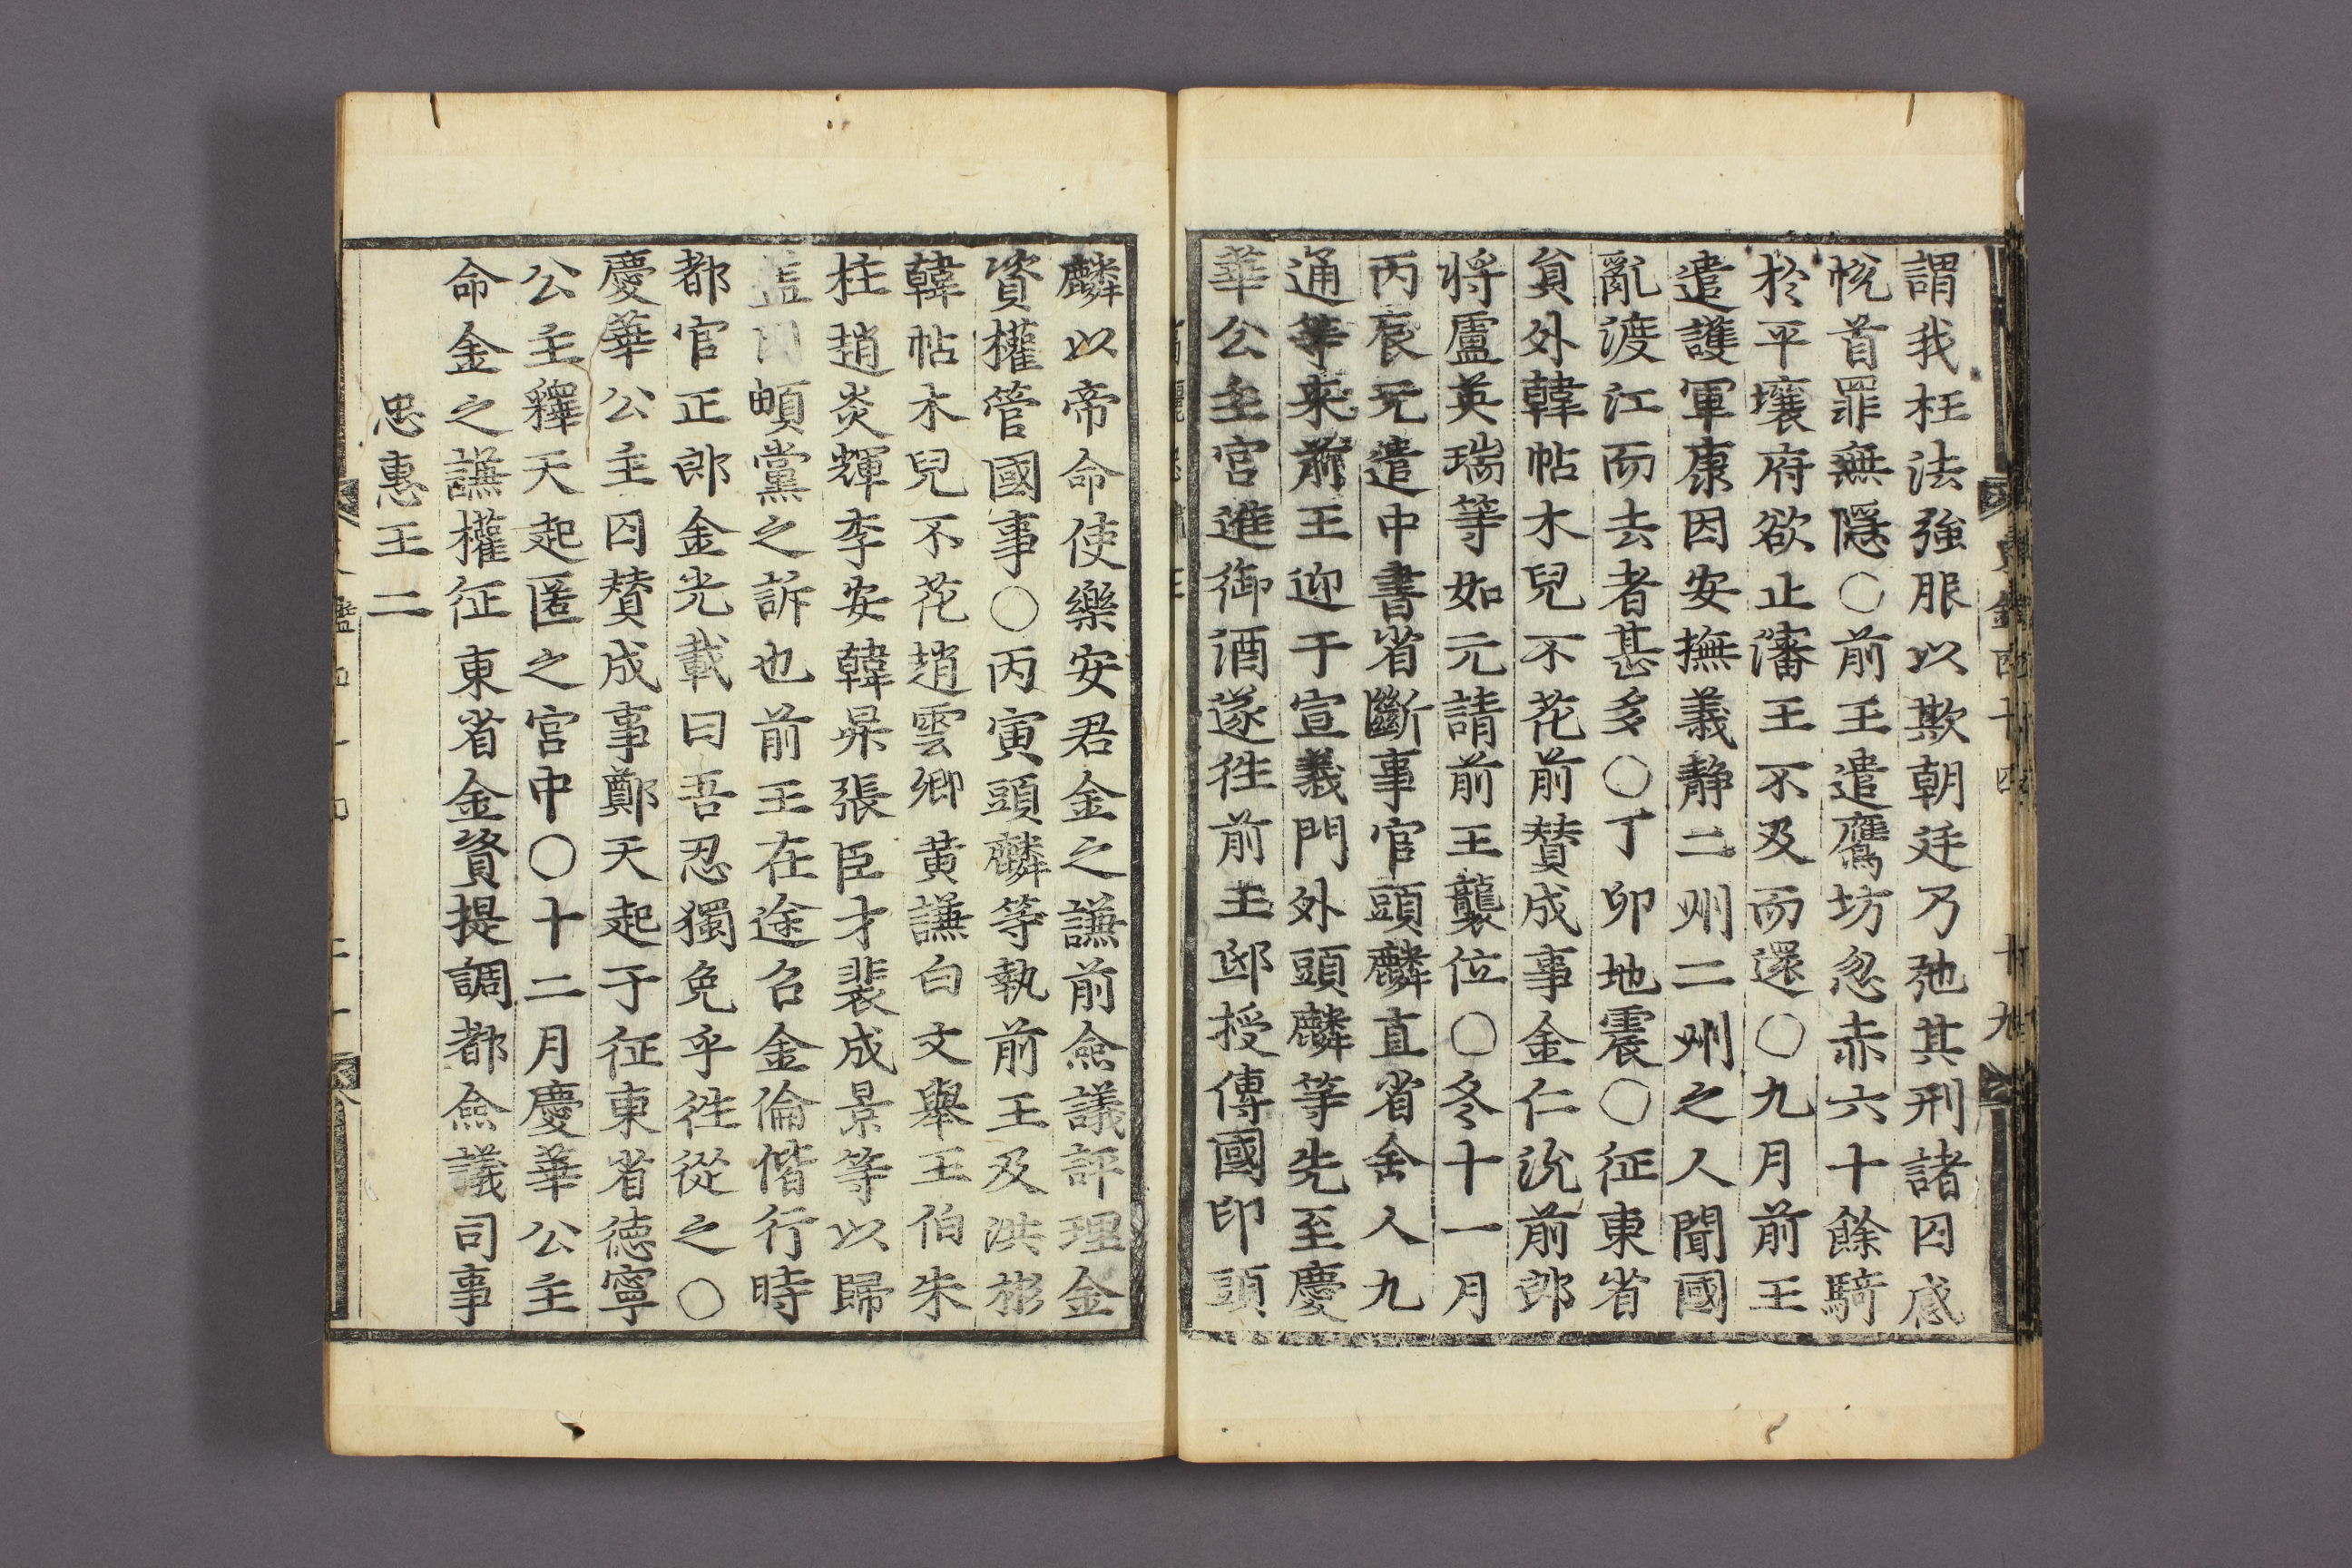 謂我枉法強服以欺朝廷乃弛其刑諸囚感
悅首罪無隱○前王遣鷹坊忽赤六十餘騎
於平壤府欲止瀋王不及而還○九月前王
遣護軍康因安撫義靜二州二州之人聞國
亂渡江而去者甚多○丁卯地震○征東省
負外韓帖木兒不花前賛成事金仁沇前郎
將盧英瑞等如元請前王襲位○冬十一月
丙辰元遣中書省斷事官頭麟直省舍人九
通等来前王迎于宣義門外頭麟等先至慶
華公主宮進御酒遂徃前王邸授傳國印頭
麟以帝命使樂安君金之謙前僉議評理金
資權管國事○丙寅頭麟等執前王及洪彬
韓帖木兒不花趙雲卿黄謙白文舉王伯朱
柱趙炎輝李安韓杲張臣才裴成景等以歸
盖因頔黨之訴也前王在途召金倫偕行時
都官正郎金光載曰吾忍獨免乎徃從之○
慶華公主囚賛成事鄭天起于征東省德寧
公主釋天起匿之宮中○十二月慶華公主
命金之謙權征東省金資提調都僉議司事
忠惠王二